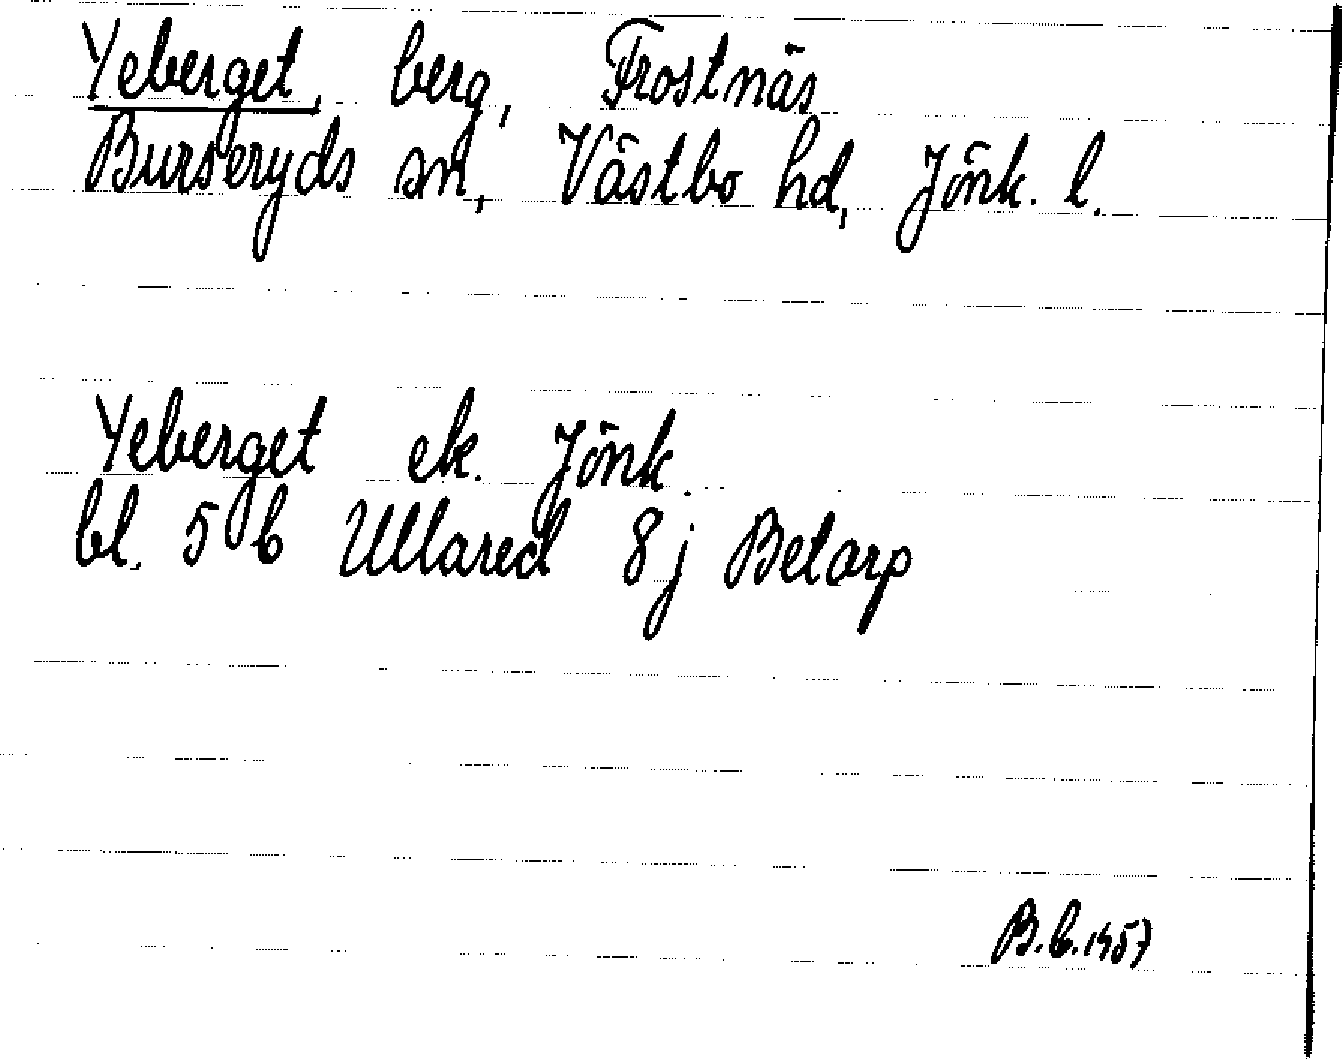 Yeberget, berg, Frostnäs
Burseryds sn, Västbo hd, Jönk. l.
Yeberget ek. Jönk.
bl. 5 b Ullared 8 j Betarp
B.b. 1957